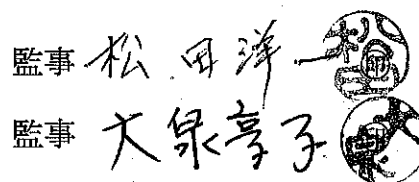 監事 松田洋一
監事 大泉享子